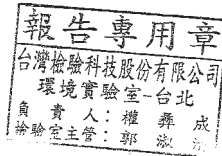 報告專用章
台灣檢驗科技股份有限公司
環境實驗室-台北
負責人：權彝成
檢驗室主管：郭淑